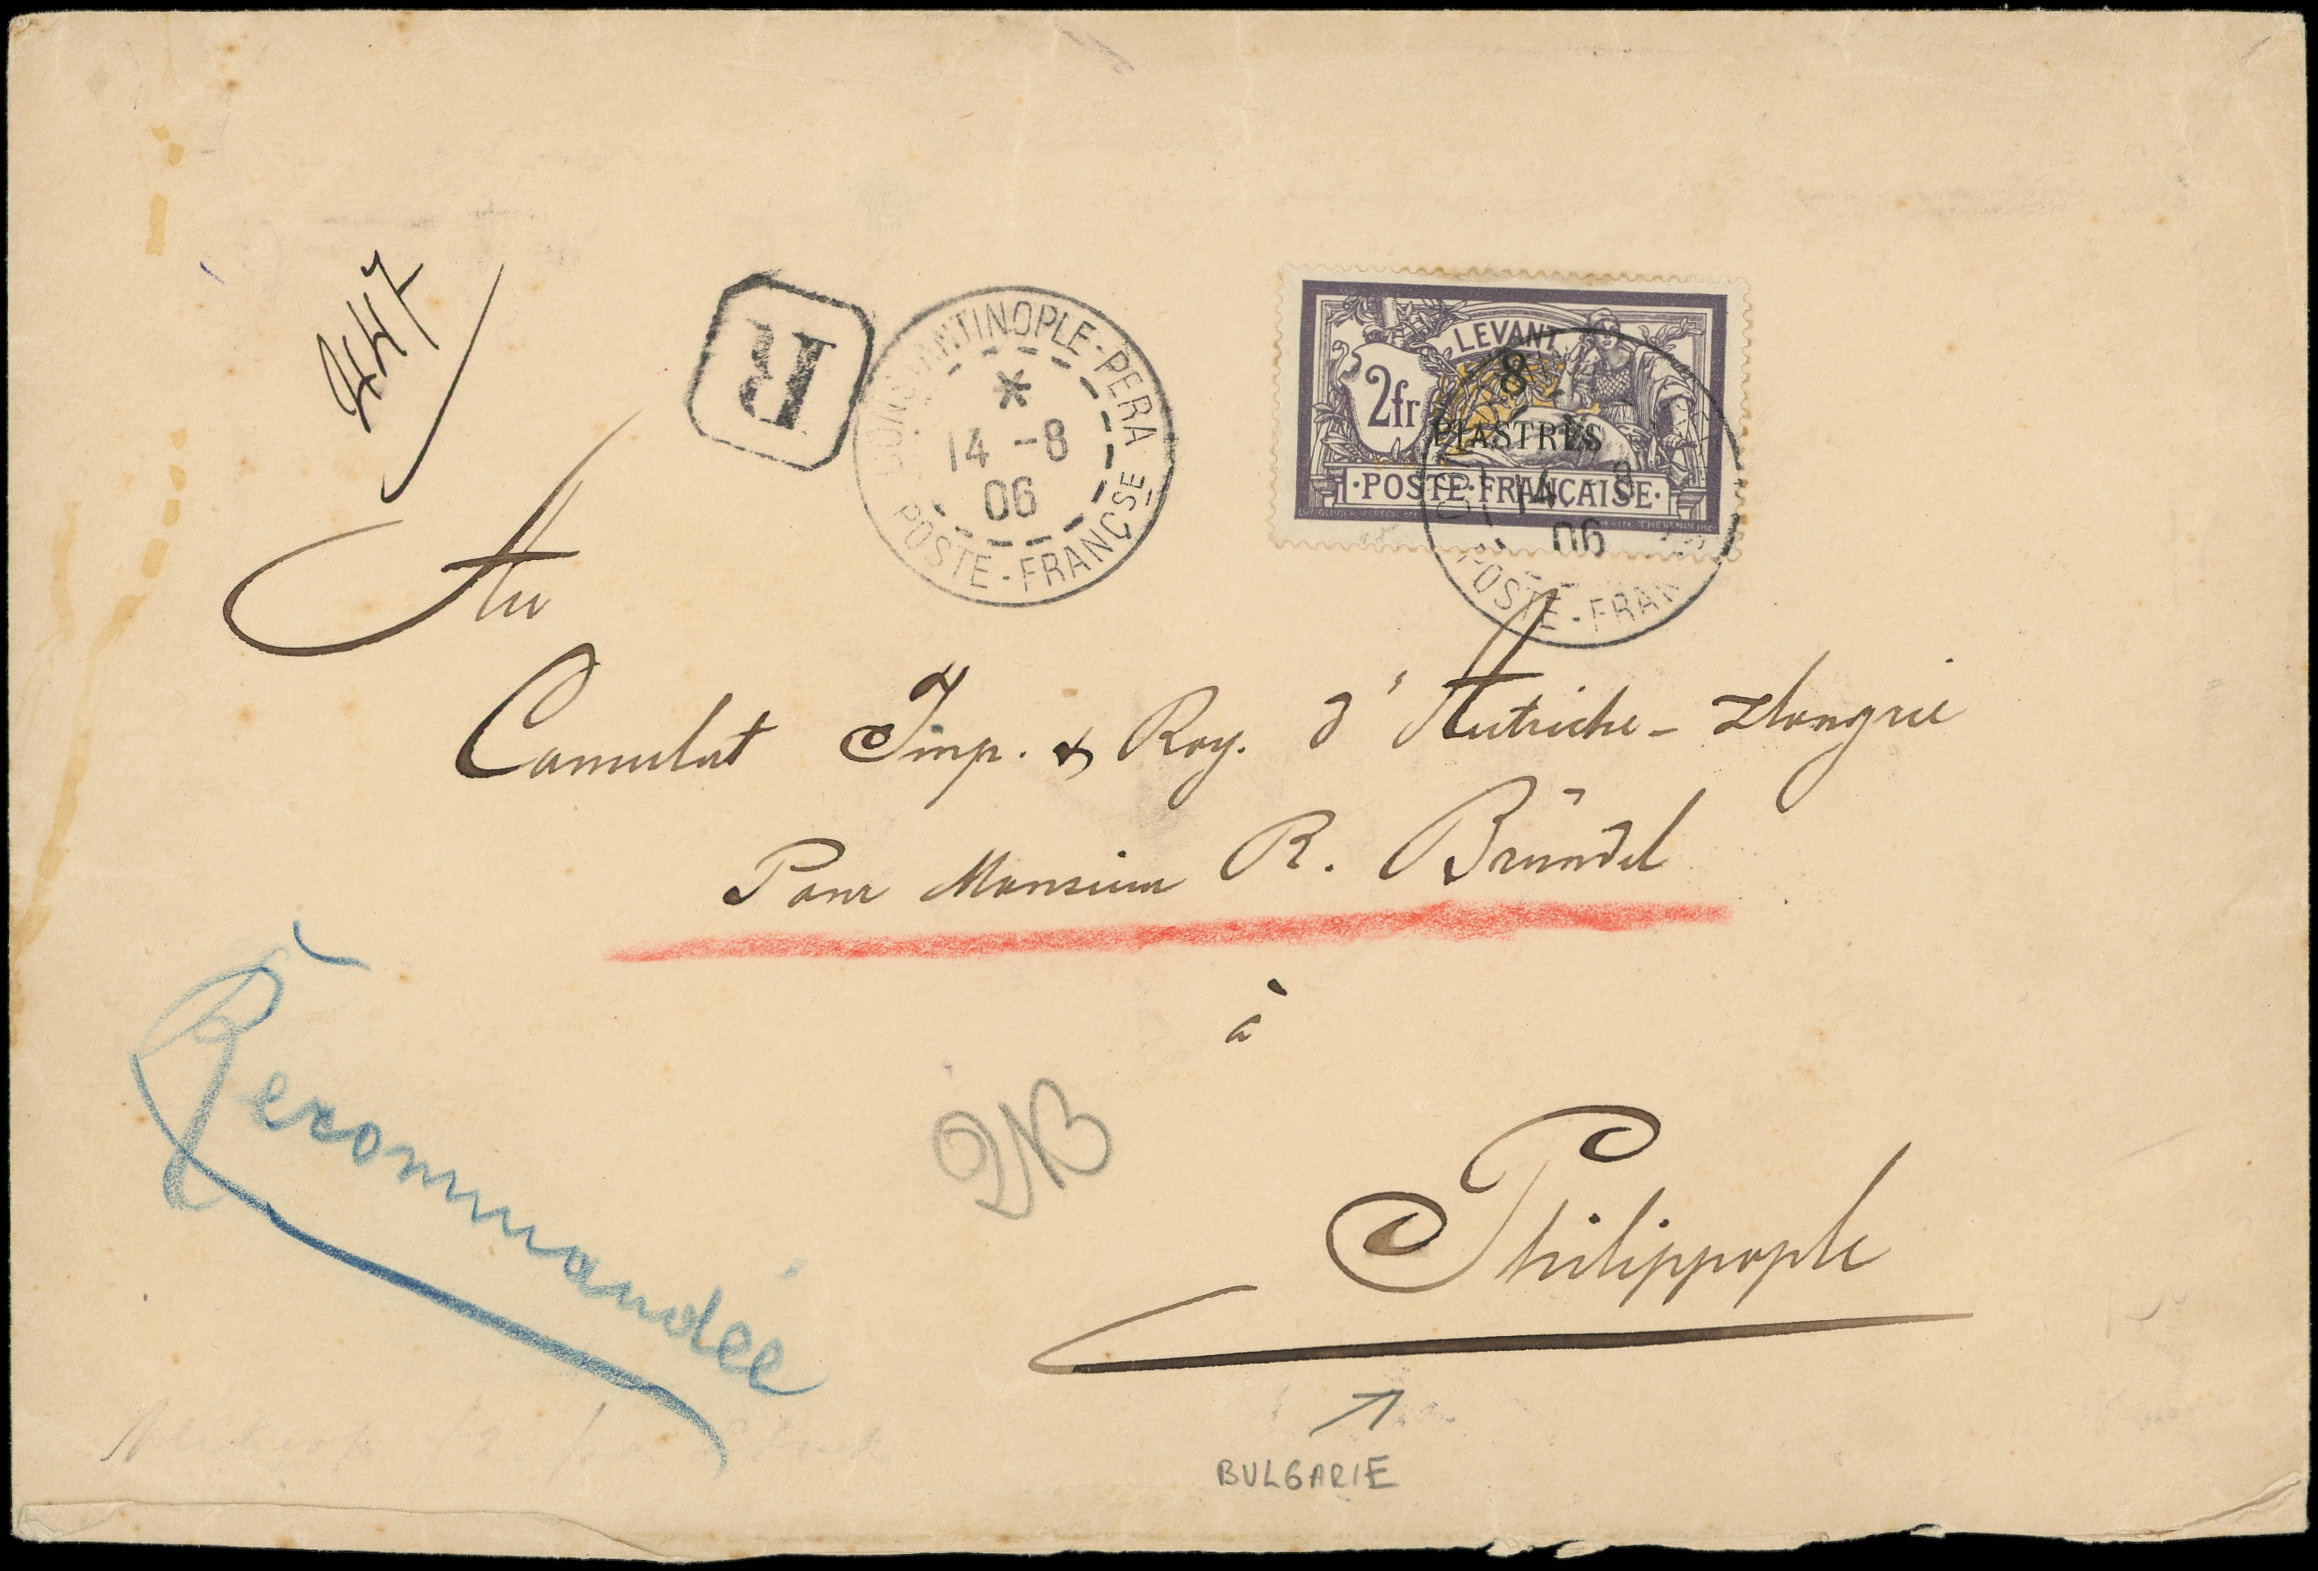 447
R
CONSTANTINOPLE-PERA
*
14 -8
06
POSTE-FRANÇSE
LEVANT
8
2fr
PIASTRES
·POSTE·FRANÇAISE·
14 -8
06
POSTE-FRAN
Au
Consulat Imp. & Roy. d'Autriche-Hongrie
Pour Monsieur R. Bründel
à
Philippople
Recommandée
BULGARIE